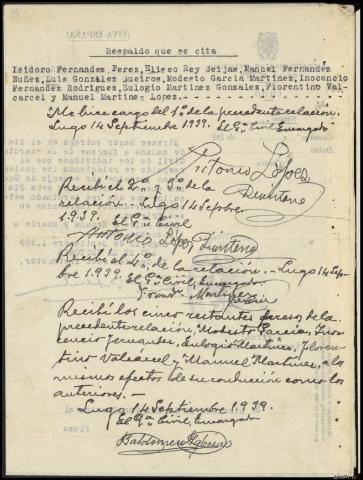 ¡VIVA ESPAÑA!
Respaldo que se cita
Isidoro Fernandez Perez, Eliseo Rey Seijas, Manuel Fernandez
Nuñez, Luis Gonzalez Sueiros, Modesto Garcia Martinez, Inocencio
Fernandez Rodriguez, Eulogio Martinez Gonzalez, Florentino Val-
carcel y Manuel Martinez Lopez.
Me hice cargo del 1º de la precedente relación.
Lugo 14 Septiembre 1939.
El Gª Civil Encargado
Antonio López
Quintana
Recibí el 2º y 3º de la
relación.- Lugo 14 Sepbre.
1939. El Gª Civil
Antonio López Quintana
Recibí el 4º de la relación.- Lugo 14 Sep-
bre 1939. El Gª Civil, Encargado.
Martinez
Recibí los cinco restantes presos de la
precedente relación, Modesto García, Ino-
cencio Fernandez, Eulogio Martinez, Floren-
tino Valcarcel y Manuel Martinez, a los
mismos efectos de su conducción como los
anteriores.-
Lugo 14 Septiembre 1939.
El Gª Civil, Encargado
Baldomero Iglesias